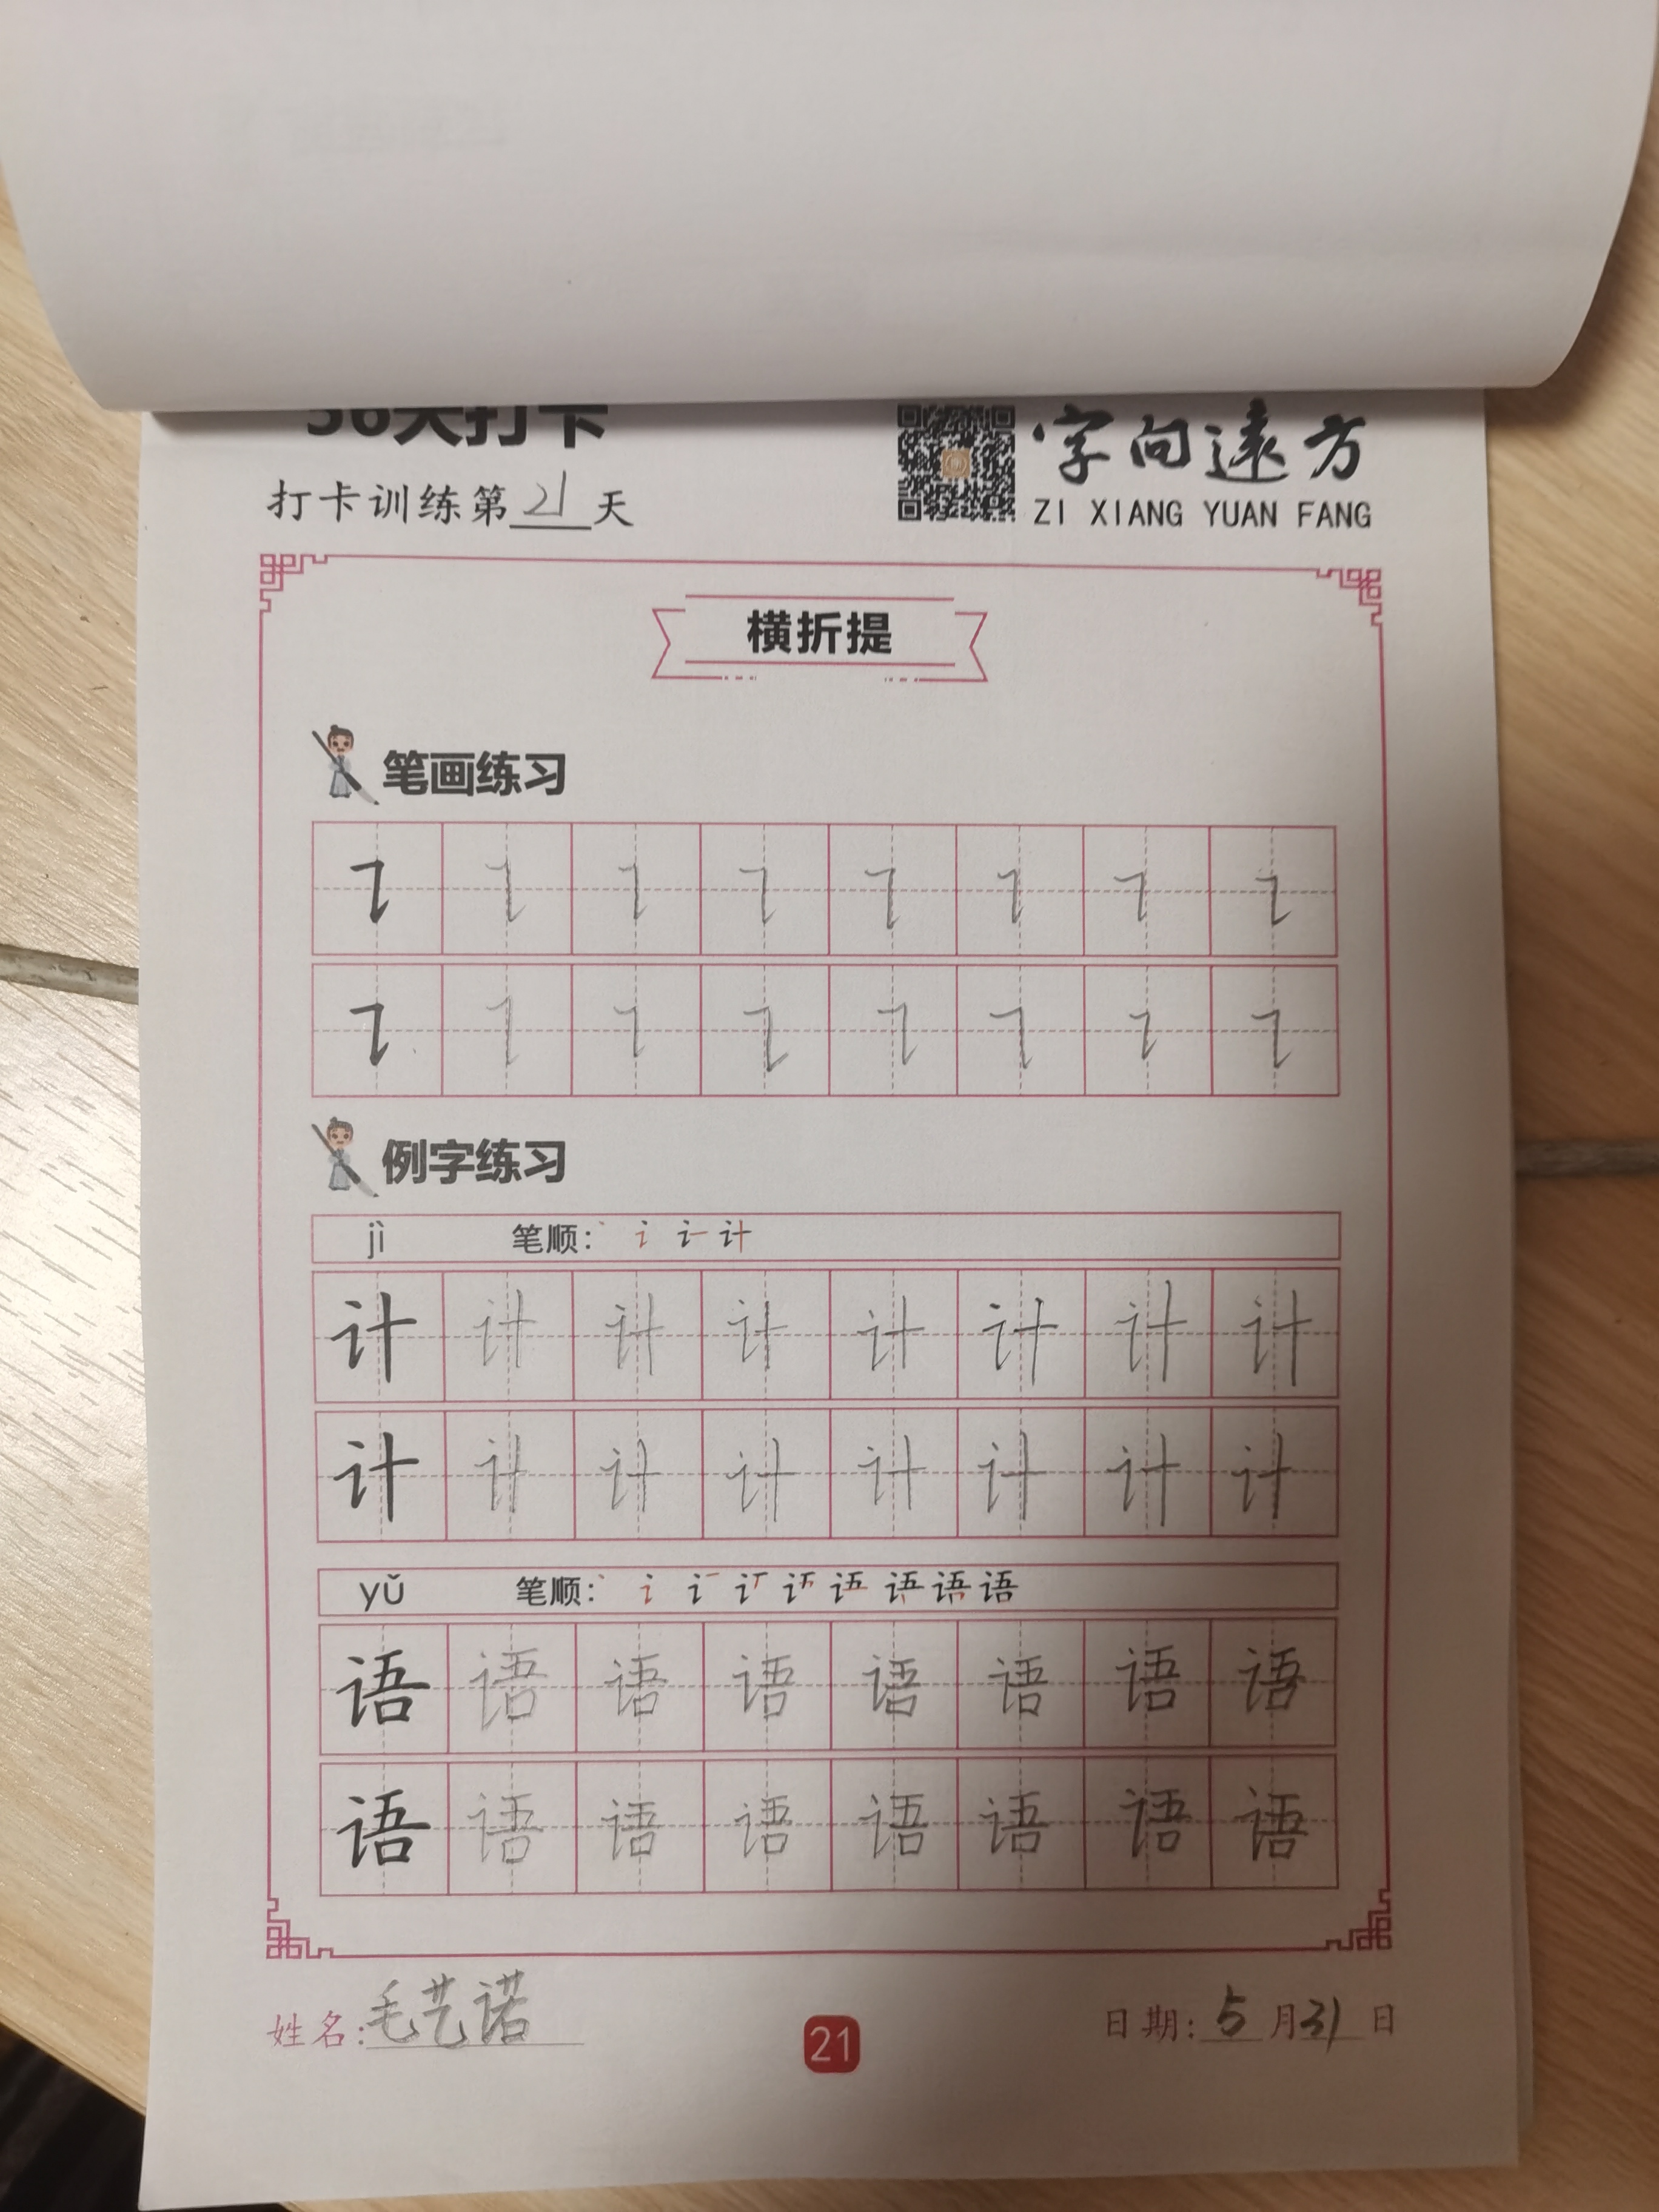 36天打卡
打卡训练第21天
字向遠方
ZI XIANG YUAN FANG
横折提
笔画练习
例字练习
jì 笔顺: 丶 讠 计
计 计 计 计 计 计 计 计
计 计 计 计 计 计 计 计
yǔ 笔顺: 丶 讠 语 语
语 语 语 语 语 语 语 语
语 语 语 语 语 语 语 语
姓名:毛艺诺
21
日期:5月31日